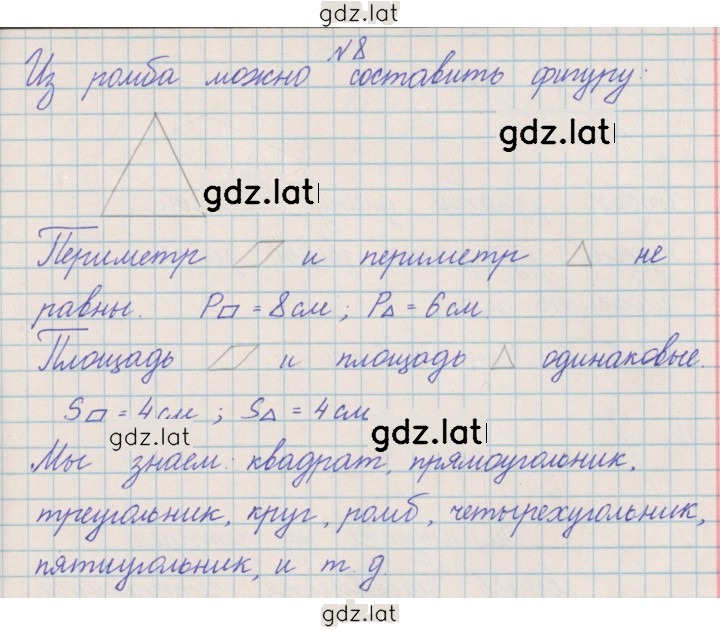 gdz.lat
№8
Из ромба можно составить фигуру:
gdz.lat
gdz.lat
Периметр и периметр не
равны. P▱ = 8см ; P△ = 6см
Площадь и площадь одинаковые.
S▱ = 4см ; S△ = 4см
gdz.lat
gdz.lat
Мы знаем: квадрат, прямоугольник,
треугольник, круг, ромб, четырехугольник,
пятиугольник, и т. д.
gdz.lat